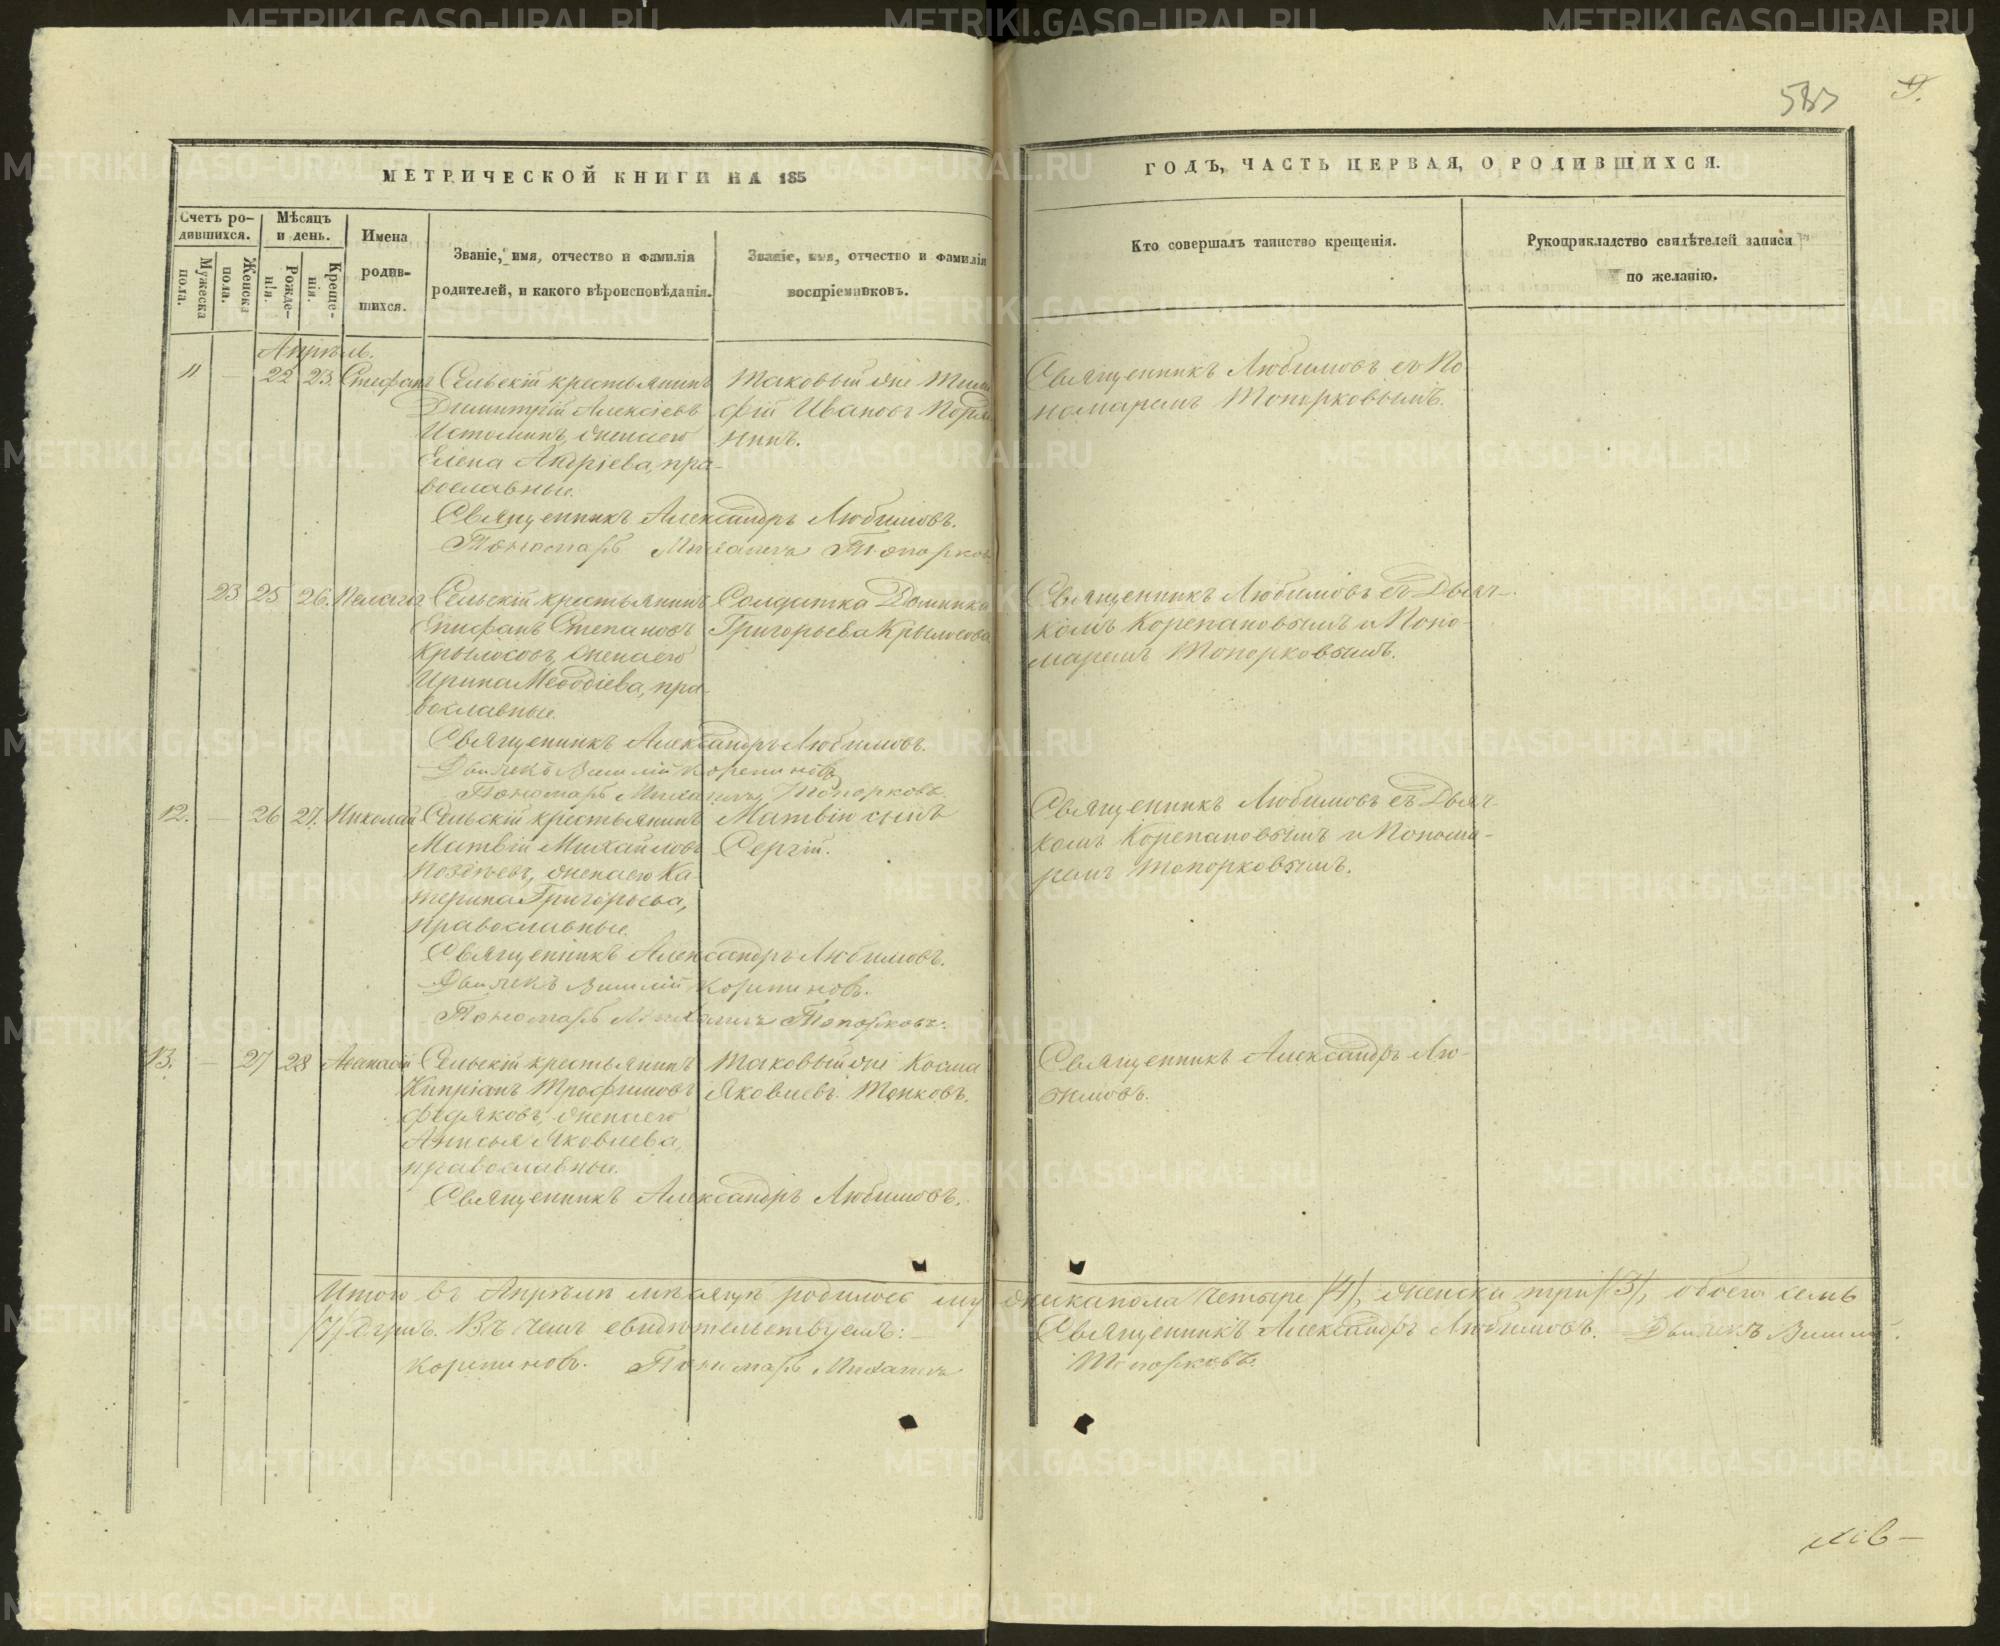 583
9.
МЕТРИЧЕСКОЙ КНИГИ НА 185
ГОДЪ, ЧАСТЬ ПЕРВАЯ, О РОДИВШИХСЯ.
Счетъ ро-
дившихся.
Мужеска пола.
Женска пола.
Мѣсяцъ
и день.
Рожде-
нія.
Креще-
нія.
Имена
родив-
шихся.
Званіе, имя, отчество и фамилія
родителей, и какого вѣроисповѣданія.
Званіе, имя, отчество и фамилія
воспріемниковъ.
Кто совершалъ таинство крещенія.
Рукоприкладство свидѣтелей записи
по желанію.
Апрѣль.
11 — 22 23. Стефанъ
Сельскій крестьянинъ
Димитрій Алексѣевъ
Истоминъ, жена его
Елена Андріева, пра-
вославные.
Таковый же
фій Ивановъ
нинъ.
Священникъ Любимовъ съ По
номаремъ Топорковымъ.
Священникъ Александръ Любимовъ.
Пономарь Михаилъ Топорковъ
23 25 26. Пелагія
Сельскій крестьянинъ
Епифанъ Степановъ
Крылосовъ, жена его
Ирина Меѳодіева, пра-
вославные.
Солдатка Домника
Григорьева Крылосова
Священникъ Любимовъ съ Дьяч-
комъ Корепановымъ и Поно-
маремъ Топорковымъ.
Священникъ Александръ Любимовъ.
Дьячекъ Василій Корепановъ
Пономарь Михаилъ Топорковъ.
12. — 26 27. Николай
Сельскій крестьянинъ
Матвій Михайловъ
Поздѣевъ, жена его Ка-
терина Григорьева,
православные.
Матвія сынъ
Сергій.
Священникъ Любимовъ съ Дьяч-
комъ Корепановымъ и Понома-
ремъ Топорковымъ.
Священникъ Александръ Любимовъ.
Дьячекъ Василій Корепановъ.
Пономарь Михаилъ Топорковъ.
13. — 27 28 Аѳанасій
Сельскій крестьянинъ
Кипріанъ Трофимовъ
Федяковъ, жена его
Анисья Яковлева,
православные.
Таковый же Косма
Яковлевъ Топковъ.
Священникъ Александръ Лю-
бимовъ.
Священникъ Александръ Любимовъ.
Итого въ Апрѣлѣ мѣсяцѣ родилось мужеска пола четыре /4/, женска три /3/, обоего семь
/7/ душъ. Въ чемъ свидѣтельствуемъ: Священникъ Александръ Любимовъ. Дьячекъ Василій
Корепановъ. Пономарь Михаилъ Топорковъ.
METRIKI.GASO-URAL.RU